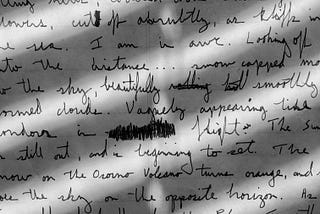 towers, cut off abruptly, as
the sea. I am in awe. Looking off
into the distance... snow capped mo
the sky, beautifully smoothly
formed clouds. Vaguely appearing like
condor in flight. The sun
still out, and is beginning to set. The
snow on the Osorno Volcano turns orange, and
the sky on the opposite horizon. As